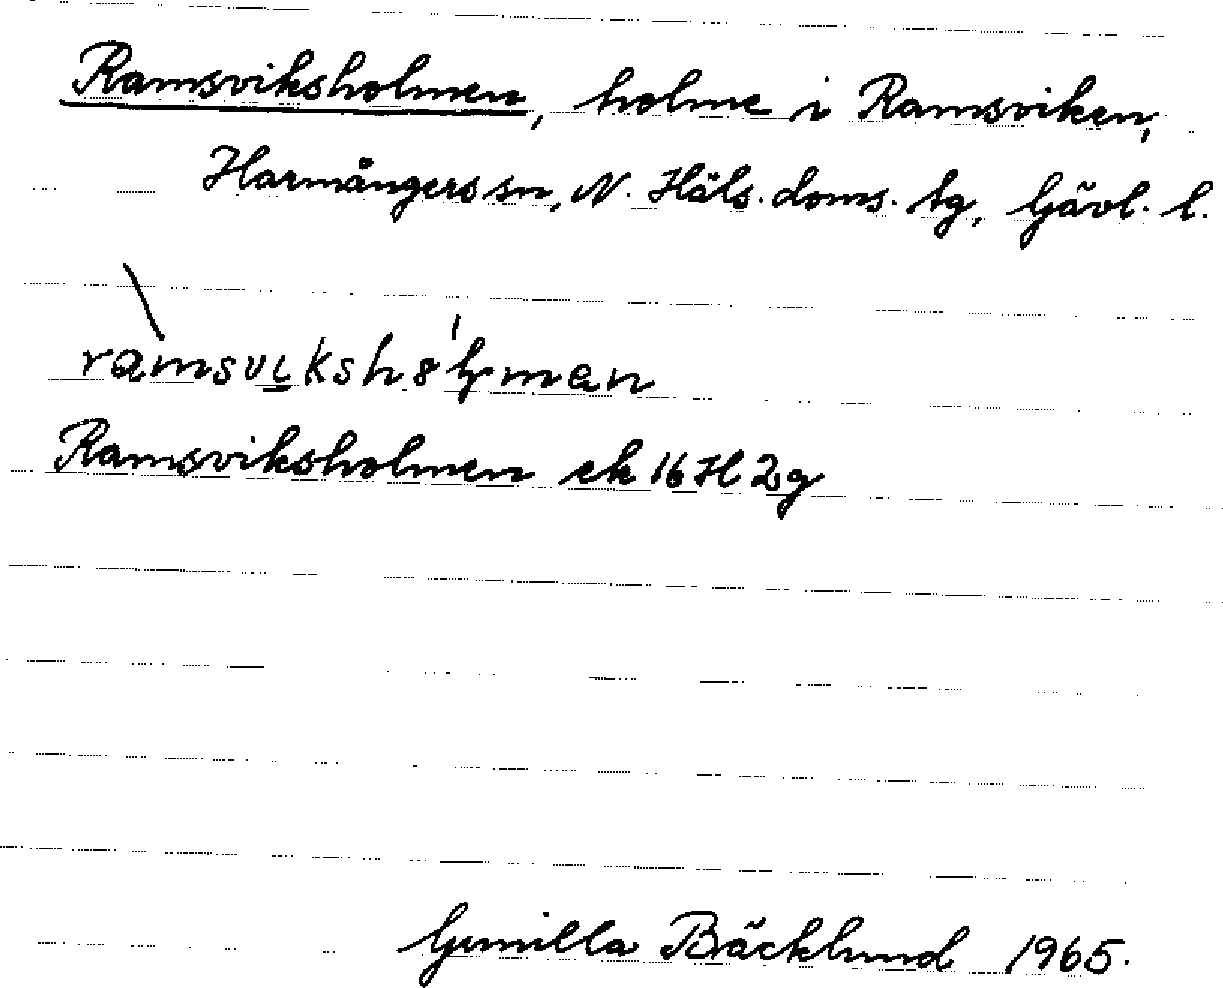 Ramsviksholmen, holme i Ramsviken,
Harmångers sn, N. Häls. doms. tg, Gävl. l.
Ramsviksholmen ek 16H2g
Gunilla Bäcklund 1965.